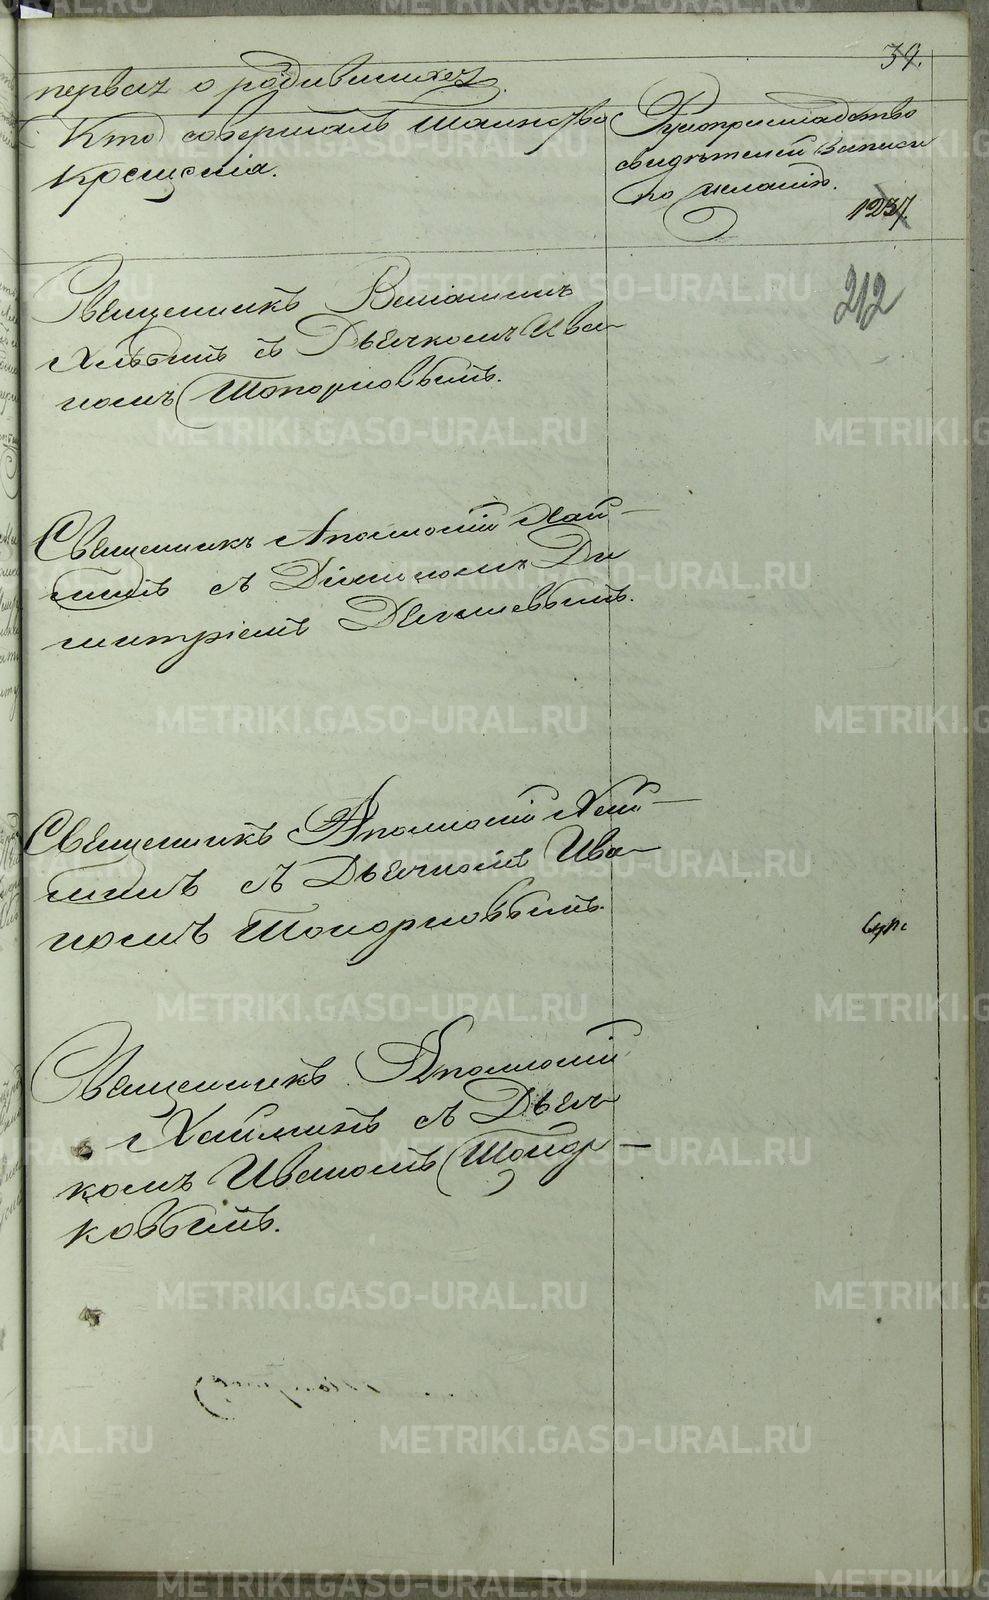 39.
первая о родившихся.
Кто совершалъ таинство
крещенія.
Рукоприкладство
свидѣтелей записи
по желанію.
1237.
212
Священникъ Веніаминъ
Хлѣбинъ съ Дьячкомъ Ива-
номъ Топорковымъ.
Священникъ Аполлоній Хай-
минъ съ Діакономъ Ди
митріемъ
Священникъ Аполлоній Хай-
минъ съ Дьячкомъ Ива-
номъ Топорковымъ.
Священникъ Аполлоній
Хайминъ съ Дьяч-
комъ Иваномъ Топор-
ковымъ.
METRIKI.GASO-URAL.RU